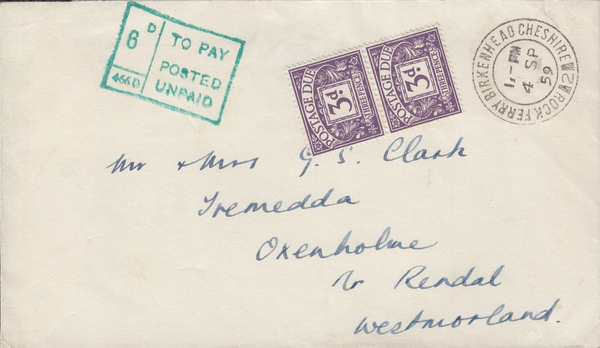 6D TO PAY
466D POSTED
UNPAID
POSTAGE DUE
3d.
POSTAGE DUE
3d.
ROCK FERRY BIRKENHEAD CHESHIRE
PM
4 SP
59
Mr & Mrs G. S. Clark
Tremedda
Oxenholme
Nr Kendal
Westmorland.